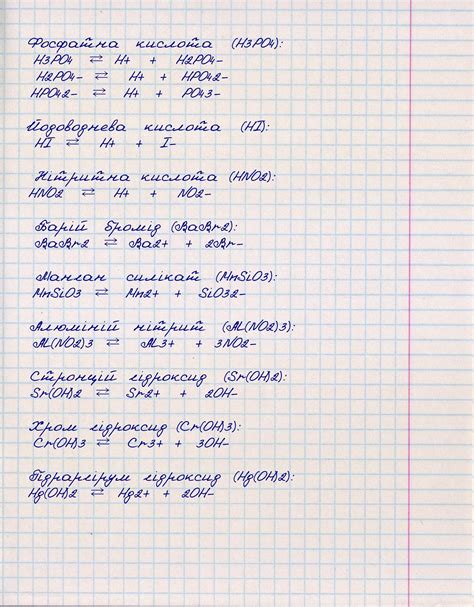 Фосфатна кислота (H3PO4):
H3PO4 ⇄ H+ + H2PO4-
H2PO4- ⇄ H+ + HPO42-
HPO42- ⇄ H+ + PO43-
Йодоводнева кислота (HI):
HI ⇄ H+ + I-
Нітритна кислота (HNO2):
HNO2 ⇄ H+ + NO2-
Барій бромід (BaBr2):
BaBr2 ⇄ Ba2+ + 2Br-
Манган силікат (MnSiO3):
MnSiO3 ⇄ Mn2+ + SiO32-
Алюміній нітрит (Al(NO2)3):
Al(NO2)3 ⇄ Al3+ + 3NO2-
Стронцій гідроксид (Sr(OH)2):
Sr(OH)2 ⇄ Sr2+ + 2OH-
Хром гідроксид (Cr(OH)3):
Cr(OH)3 ⇄ Cr3+ + 3OH-
Гідраргірум гідроксид (Hg(OH)2):
Hg(OH)2 ⇄ Hg2+ + 2OH-